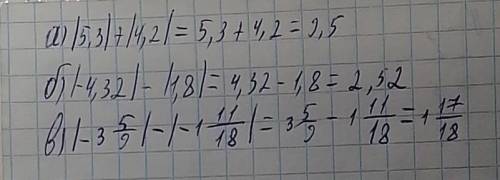 а) |5,3| + |4,2| = 5,3 + 4,2 = 9,5
б) |-4,32| - |1,8| = 4,32 - 1,8 = 2,52
в) |-3 5/9| - |-1 11/18| = 3 5/9 - 1 11/18 = 1 17/18